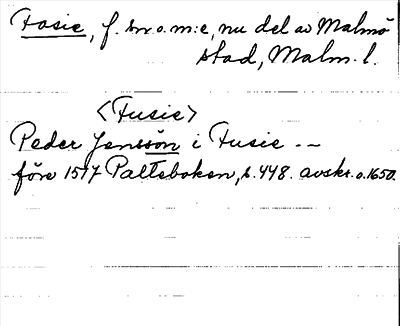 Fosie, f. sn. o. m:e, nu del av Malmö
stad, Malm. l.
<Fusie>
Peder Jensson i Fusie --
före 1517 Palteboken, s. 448. avskr. o. 1650.